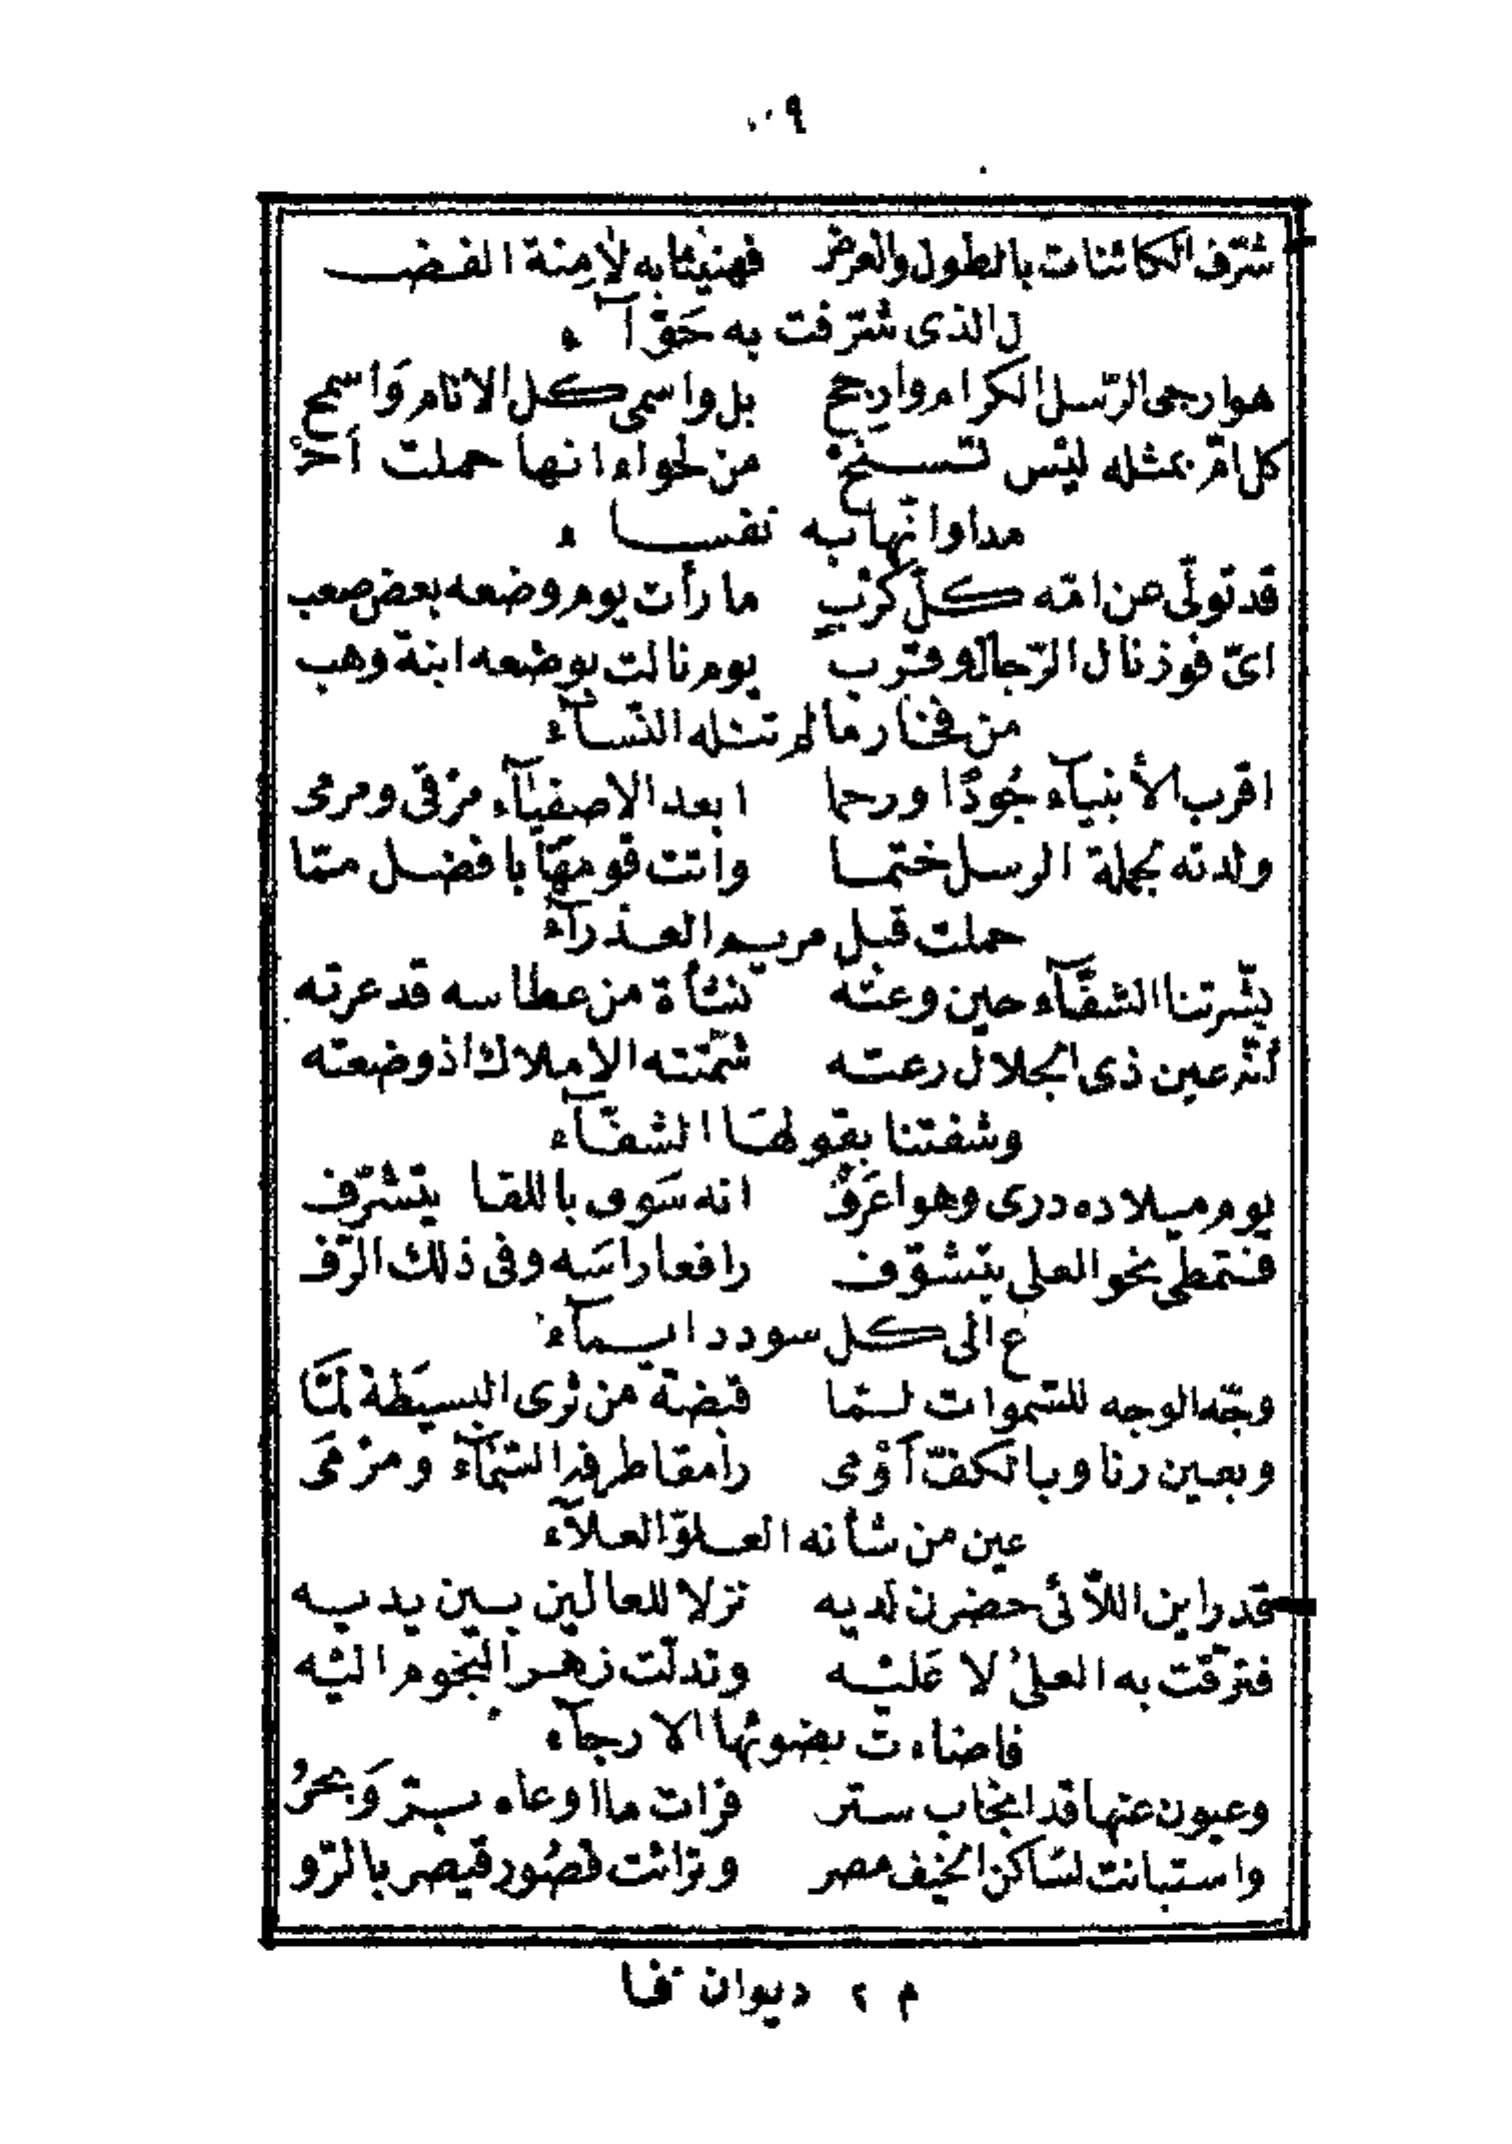 ٩
شرّف الكائنات بالطول والعرض فهنيئا به لآمنة الفضـ
ل الذى شرّفت به حَوّآء
هو ارجى الرّسل الكرام وارجح بل واسمى كل الانام وَاسمح
كل امّ بمثله ليْس تسنح من لحواء انها حملت أحْـ
مد او انّها به نفساء
قد تولّى عن امّه كلّ كرْبٍ ما رأت يوم وضعه بعض صعب
اىّ فوز نال الرّجال وقرب يوم نالت بوضعه ابنة وهب
من فخار ما لم تنله النّسآء
اقرب الأنبيآء جُودًا ورحما ابعد الاصفيآء مرْقى ومرمى
ولدته لجملة الرسل ختما واتت قومهَا بافضل ممّا
حملت قبل مريم العذرآء
بشّرتنا الشفّآء حين وعتْه نشأة من عطاسه قد عرته
أنّه عين ذى الجلال رعته شمّتته الاملاك اذ وضعته
وشفتنا بقولهَا الشفّآء
يوم ميلاده درى وهو اعَرفْ انه سَوف باللقا يتشرّف
فتمطى نحو العلى يتشوّف رافعا راسَه وفى ذلك الرّفـ
ع الى كل سودد ايمآء
وجّه الوجه للسّموات لمّا قبضة من ثرى البسيَطة لمَّا
وبعين رنا وبالكفّ أوْمى رامقا طرفه السّمآء ومرْمَى
عين من شأنه العلوّ العلآء
قد راين اللاّئى حضرن لديه نزلا للعالين بين يديه
فترقّت به العلىْ لا عَليْه وتدلّت زهر النّجوم اليْه
فاضاءت بضوئها الارجآء
وعيون عنها قد انجاب ستر فرات ما اوعاه برّ وَبحرُ
واستبانت لسَاكن الخيف مصر وترائت قصُور قيصر بالرّو
م ٢ ديوان